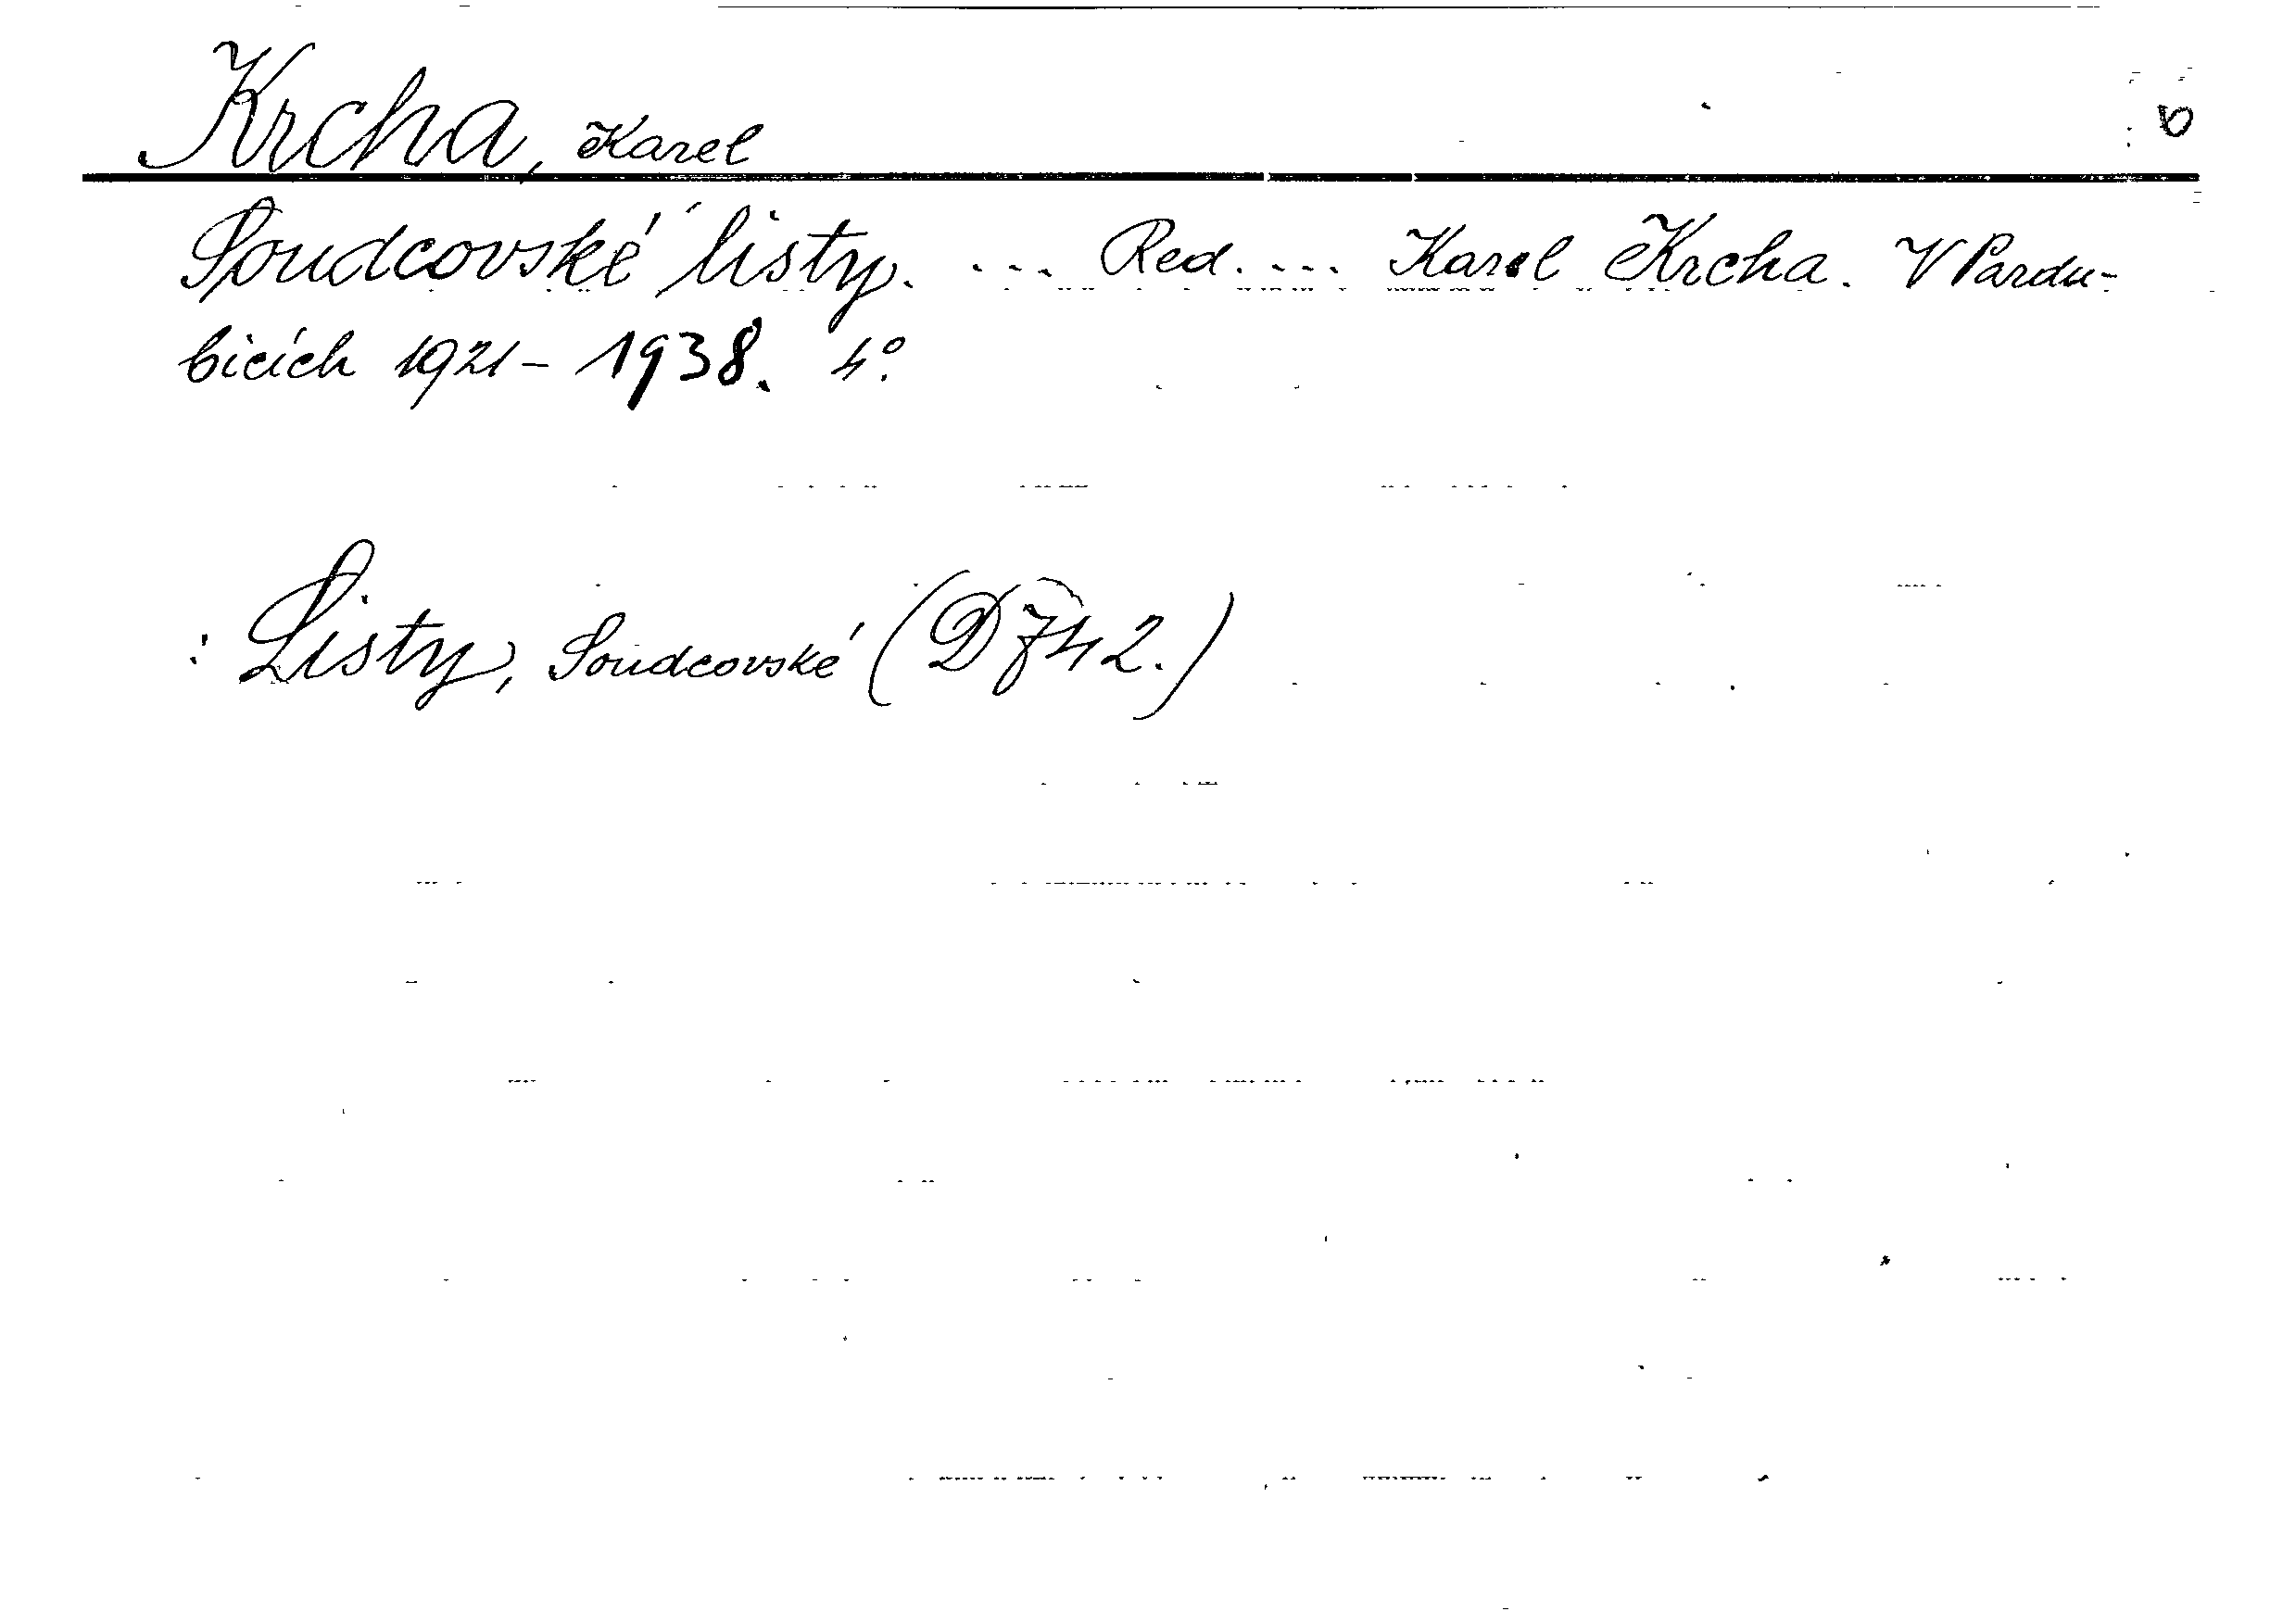 Krcha, Karel
Soudcovské listy. ... Red. ... Karel Krcha. V Pardu-
bicích 1921 - 1938. 4°.
: Listy, Soudcovské (D 742.)